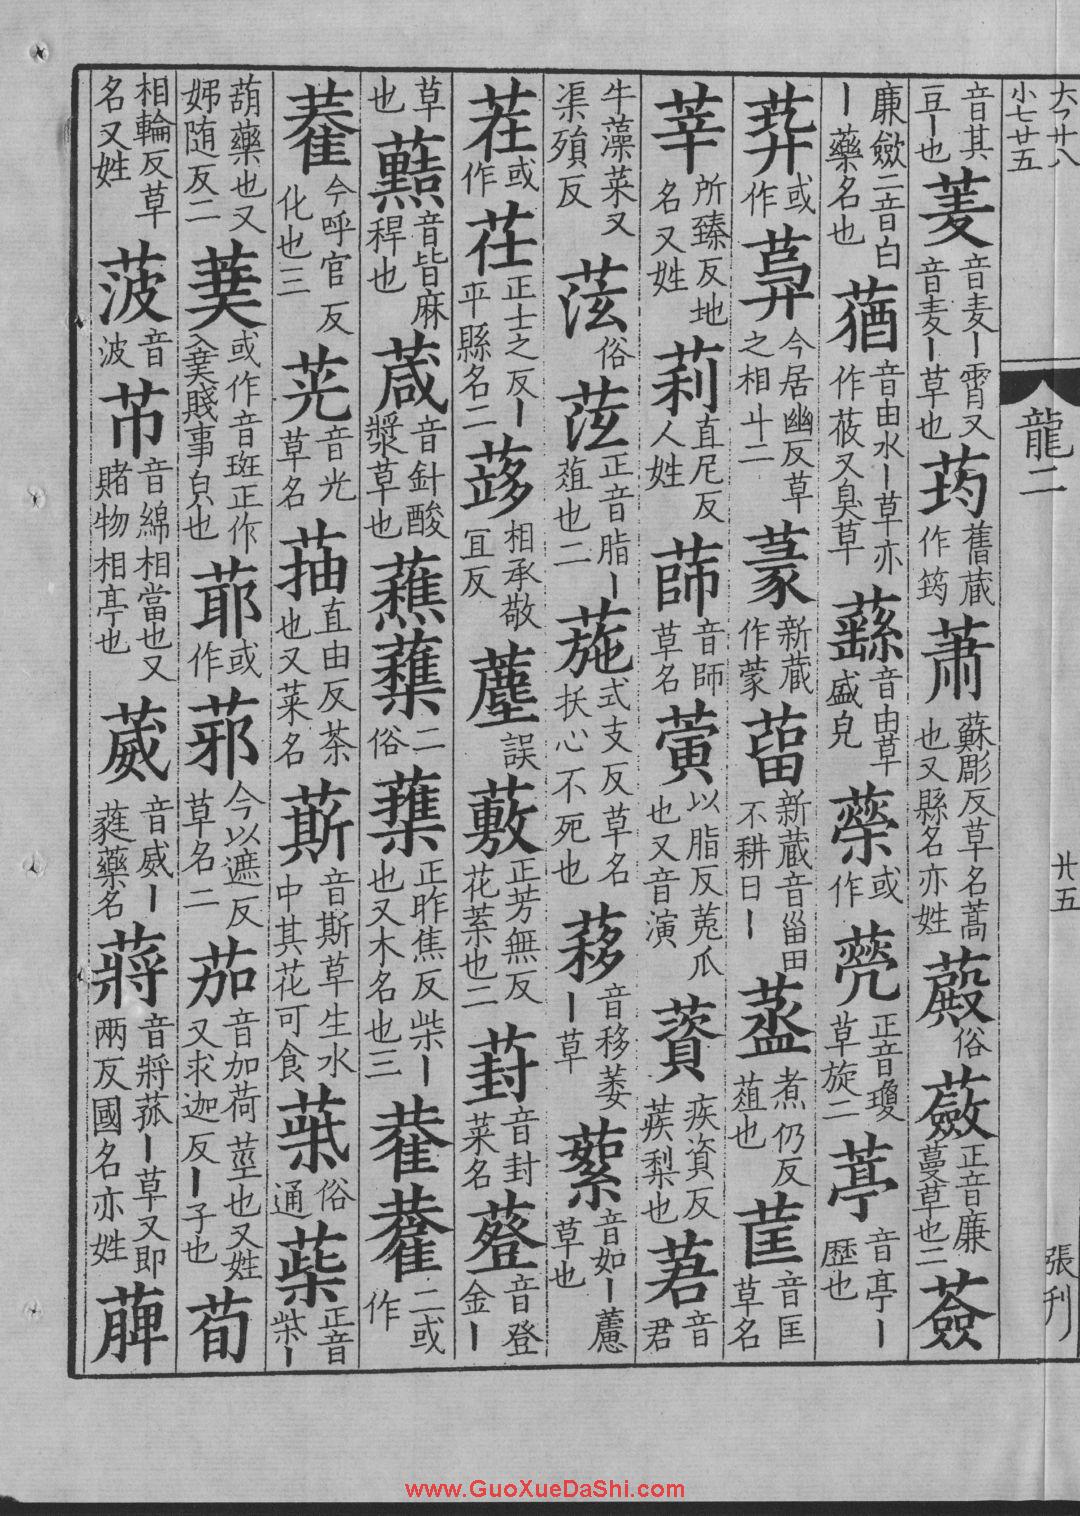 大廿八
小七廿五
龍二
廿五
張刊
音其豆一也 䔖 音麦一霄又音麦一草也 荺 舊蔵作筠 萧 蘇彫反草名蒿也又縣名亦姓 蕿 俗 蘞 正音廉蔓草也二 薟
廉歛二音白一藥名也 蕕 音由水一草亦作莜又臭草 蘨 音由草盛皃 藀 或作 藑 正音瓊草旋二 葶 音亭一歷也
或作 今居幽反草之相丩二 蒃 新蔵作蒙 葘 新蔵音甾田不耕日一 蒸 煮仍反葅也 䒰 音匡草名
莘 所臻反地名又姓 莉 直尼反人姓 蒒 音師草名 黃 以脂反菟瓜也又音演 薋 疾資反蒺梨也 莙 音君
牛藻菜又渠殞反 䓔 俗 正音脂一葅也二 葹 式支反草名扷心不死也 䔟 音移萎一草 蕠 音如一藘草也
茬 或作 茌 正士之反一平縣名二 䔟 相承敬冝反 誤 蔜 正芳無反花蕠也二 葑 音封菜名 䔲 音登金一
草也 音皆麻稈也 葴 音針酸漿草也 蕉 二俗 蕉 正昨焦反柴一也又木名也三 二或作
今呼官反化也三 茪 音光草名 菗 直由反茶也又菜名 蔪 音斯草生水中其花可食 俗通 茈 正音柴一
葫藥也又姊随反二 或作音班正作 賤事皃也 䓉 或作 菥 今以遮反草名二 茄 音加荷莖也又姓又求迦反一子也 荀
相輪反草名又姓 菠 音波 芇 音綿相當也又賭物相亭也 葳 音威一蕤藥名 蔣 音將菰一草又即兩反國名亦姓 萆
www.GuoXueDaShi.com